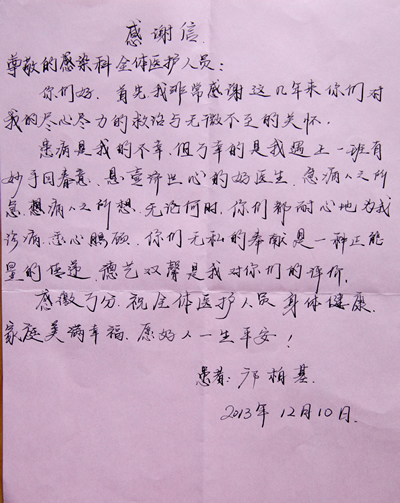 感谢信
尊敬的感染科全体医护人员:
你们好.首先我非常感谢这几年来你们对
我的尽心尽力的救治与无微不至的关怀.
患病是我的不幸,但万幸的是我遇上一班有
妙手回春意、悬壶济世心的好医生.急病人之所
急.想病人之所想.无论何时.你们都耐心地为我
诊病.悉心照顾.你们无私的奉献是一种正能
量的传递.德艺双馨是我对你们的评价.
感激万分.祝全体医护人员身体健康.
家庭美满幸福.愿好人一生平安!
患者:邝柏基.
2013年12月10日.